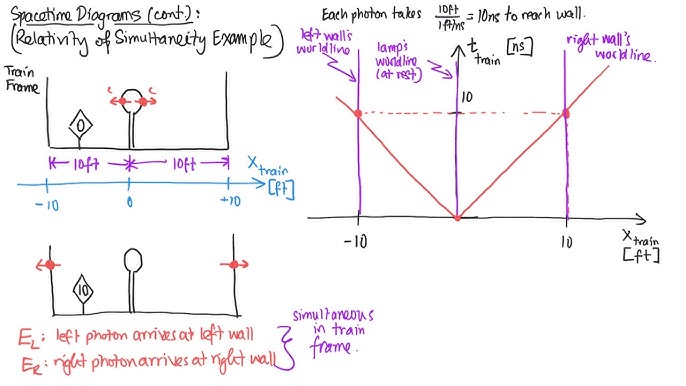 Spacetime Diagrams (cont.):
(Relativity of Simultaneity Example)
Train
Frame
c
c
0
10ft
10ft
X train
[ft]
-10
0
+10
10
E_L: left photon arrives at left wall
E_R: right photon arrives at right wall
simultaneous
in train
frame.
Each photon takes 10ft / 1ft/ns = 10ns to reach wall.
left wall's
worldline
lamp's
worldline
(at rest)
t train [ns]
right wall's
worldline.
10
-10
10
X train
[ft]